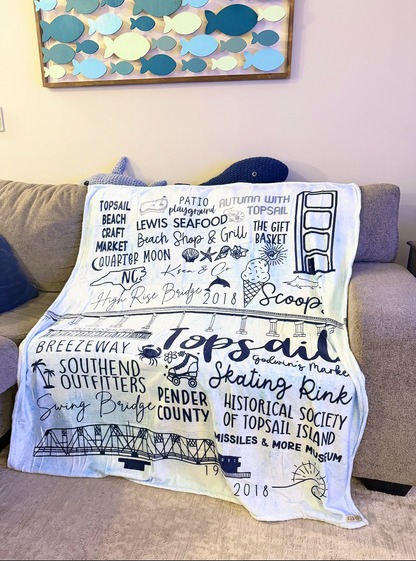 TOPSAIL
BEACH
CRAFT
MARKET
PATIO
playground
AUTUMN WITH
TOPSAIL
LEWIS SEAFOOD
Beach Shop & Grill
THE GIFT
BASKET
QUARTER MOON
NC
Koan & Co.
High Rise Bridge 2018
Scoop
BREEZEWAY
Topsail
Godwin's Market
SOUTHEND
OUTFITTERS
Skating Rink
Swing Bridge
PENDER
COUNTY
HISTORICAL SOCIETY
OF TOPSAIL ISLAND
MISSILES & MORE MUSEUM
19
2018